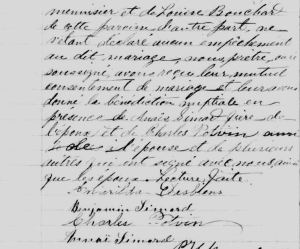 menuisier et de Louise Bouchard
de cette paroisse d'autre part, ne
s'etant déclaré aucun empêchement
au dit mariage, nous, prêtre, curé
soussigné, avons reçu leur mutuel
consentement de mariage et leur avons
donné la bénédiction nuptiale en
presence de Simard père de
l'époux et de Charles Potvin ami
de l'épouse et de plusieurs
autres qui ont signé avec nous ainsi
que les époux. Lecture faite
Benjamin Simard
Charles Potvin
Simard